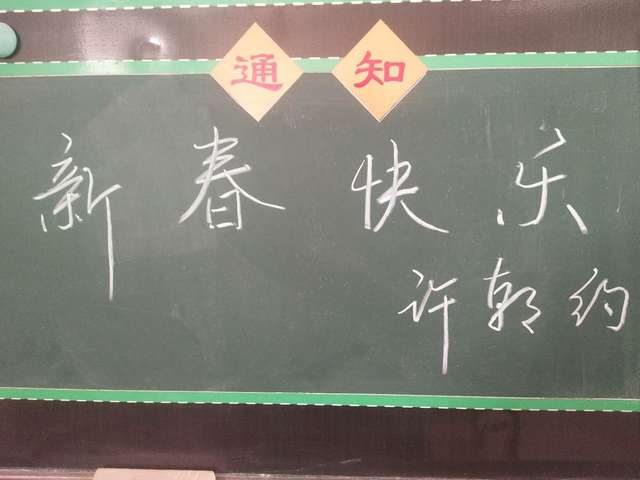 通知
新春快乐
许朝约